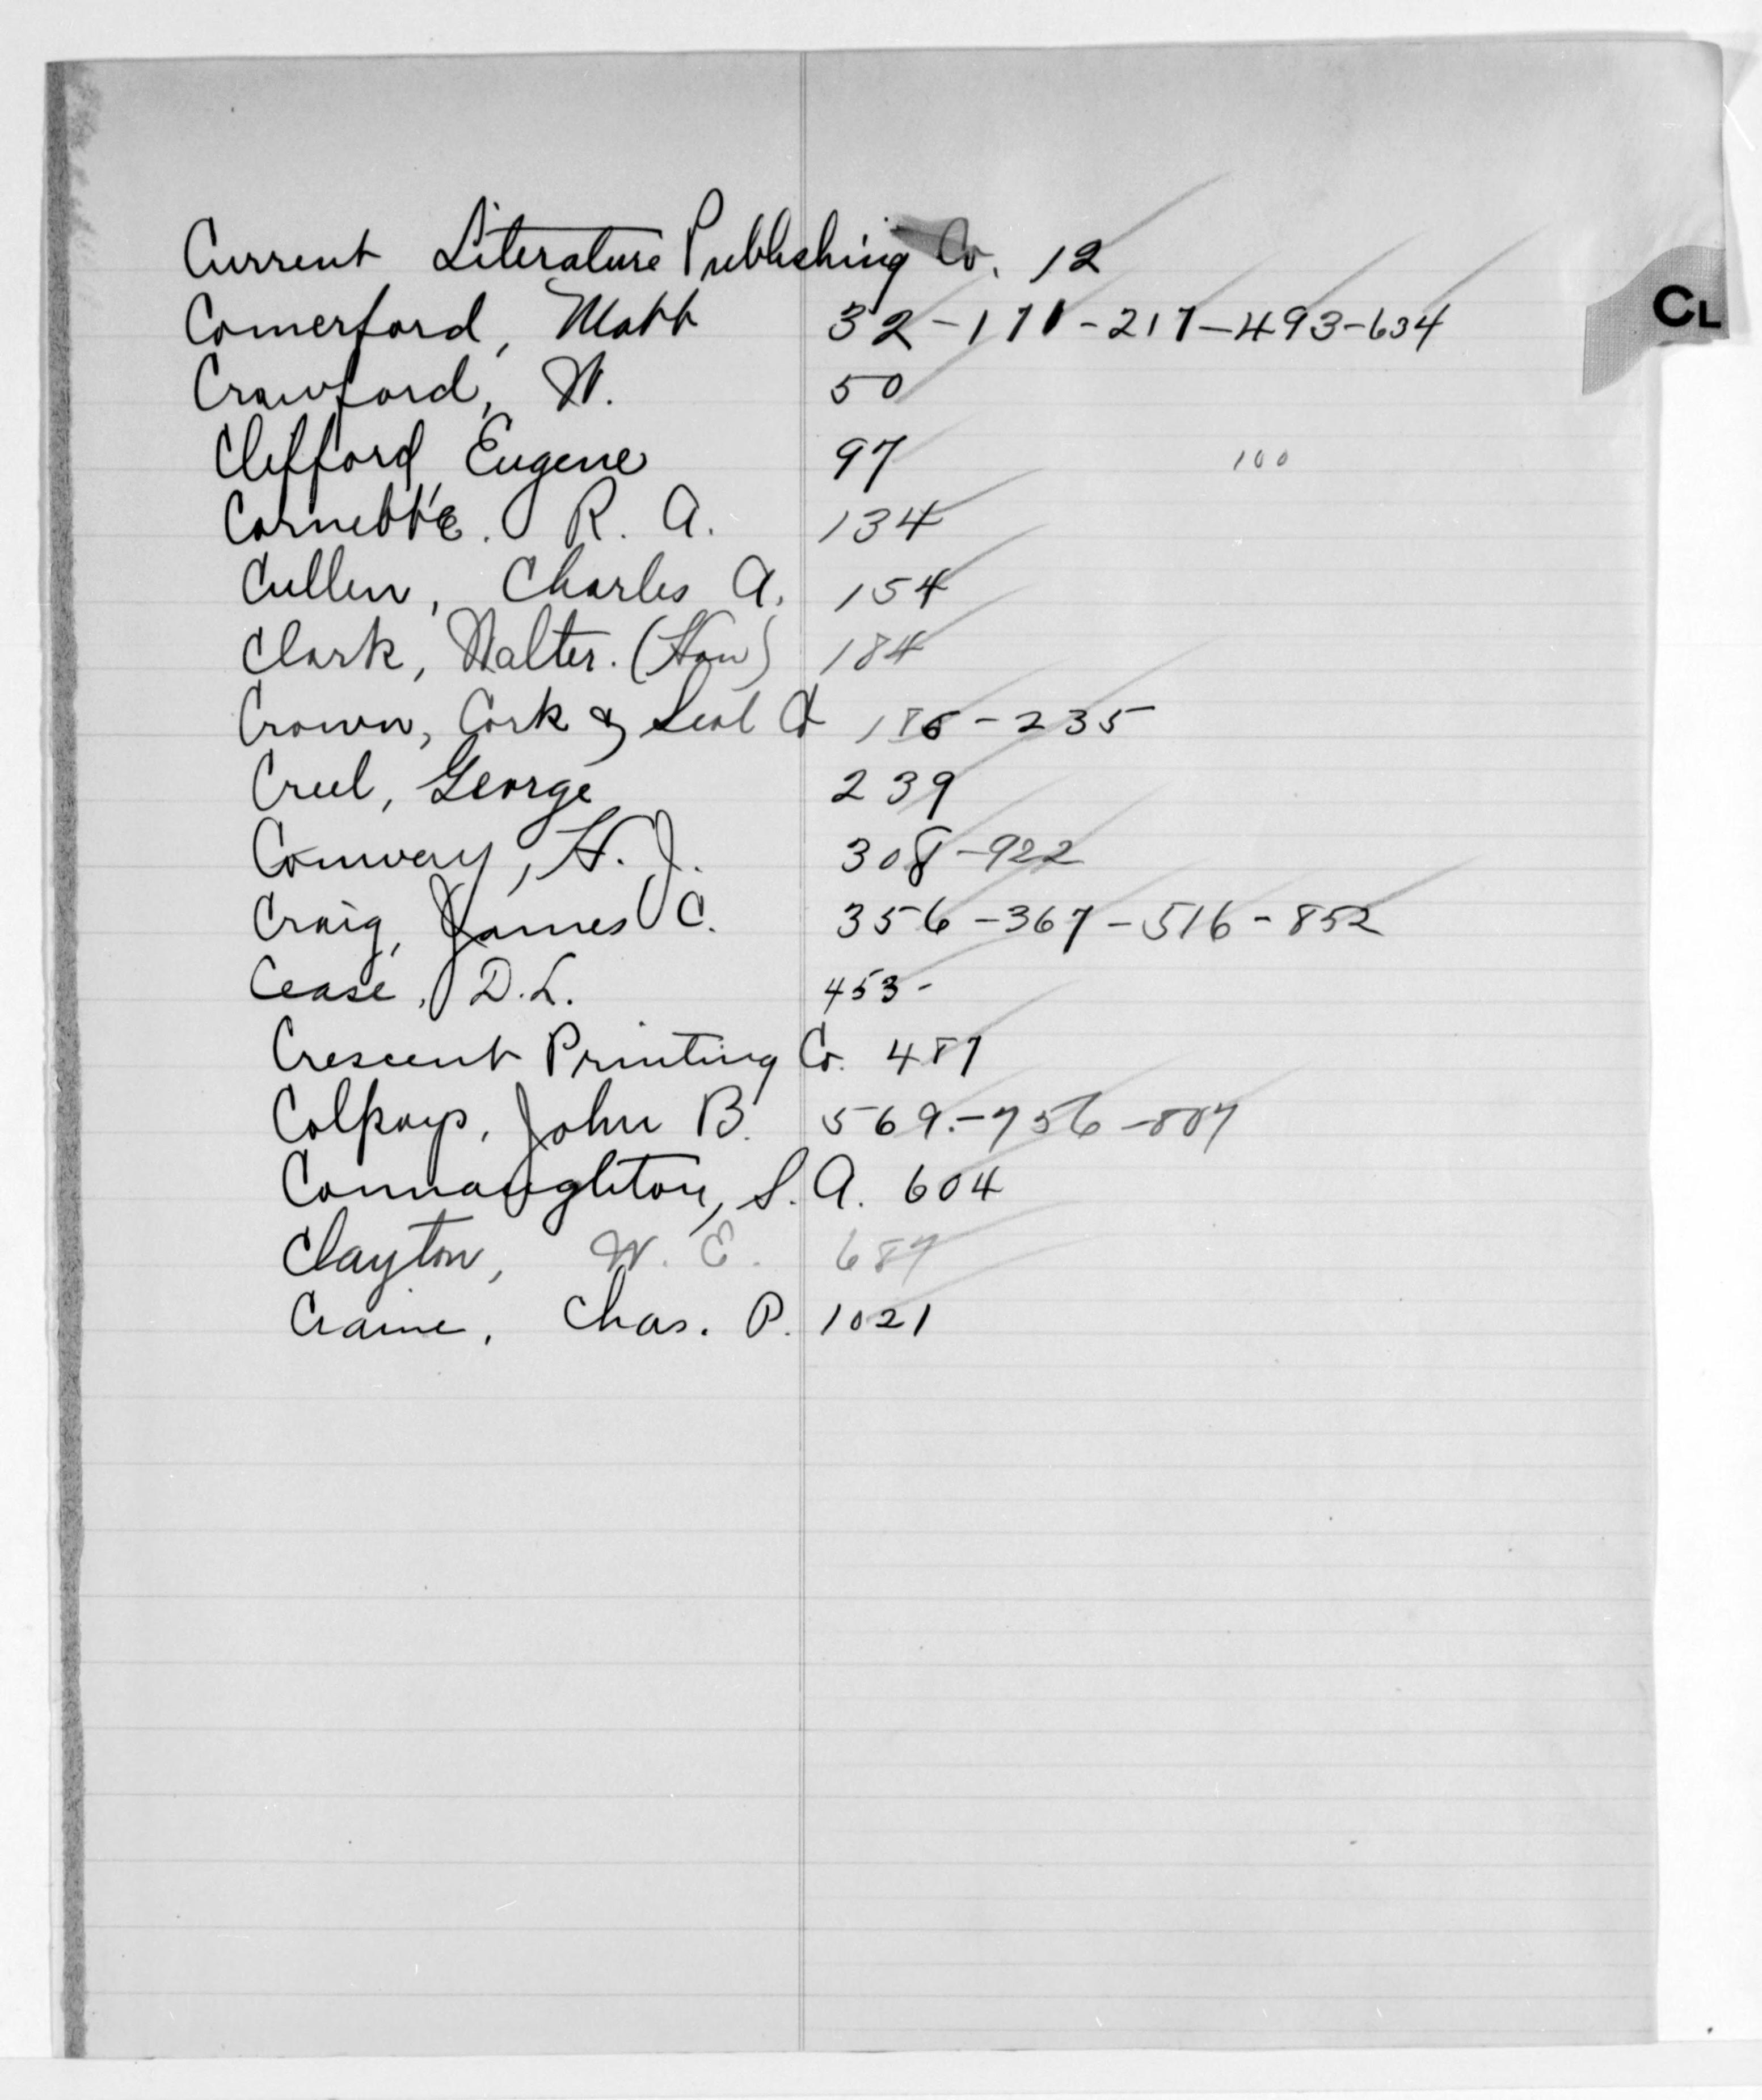 Current Literature Publishing Co. 12
CL
Comerford, Matt 32-171-217-493-634
Crawford, W. 50
Clifford, Eugene 97 100
Cornette. R. A. 134
Cullen, Charles A. 154
Clark, Walter. (Hon) 184
Crown, Cork & Seal Co 186-235
Creel, George 239
Conway, H. J. 308-922
Craig, James C. 356-367-516-852
Cease, D.L. 453-
Crescent Printing Co. 487
Colpoys, John B. 569.-756-807
Connaughton, S. A. 604
Clayton, W. E. 687
Craine, Chas. P. 1021